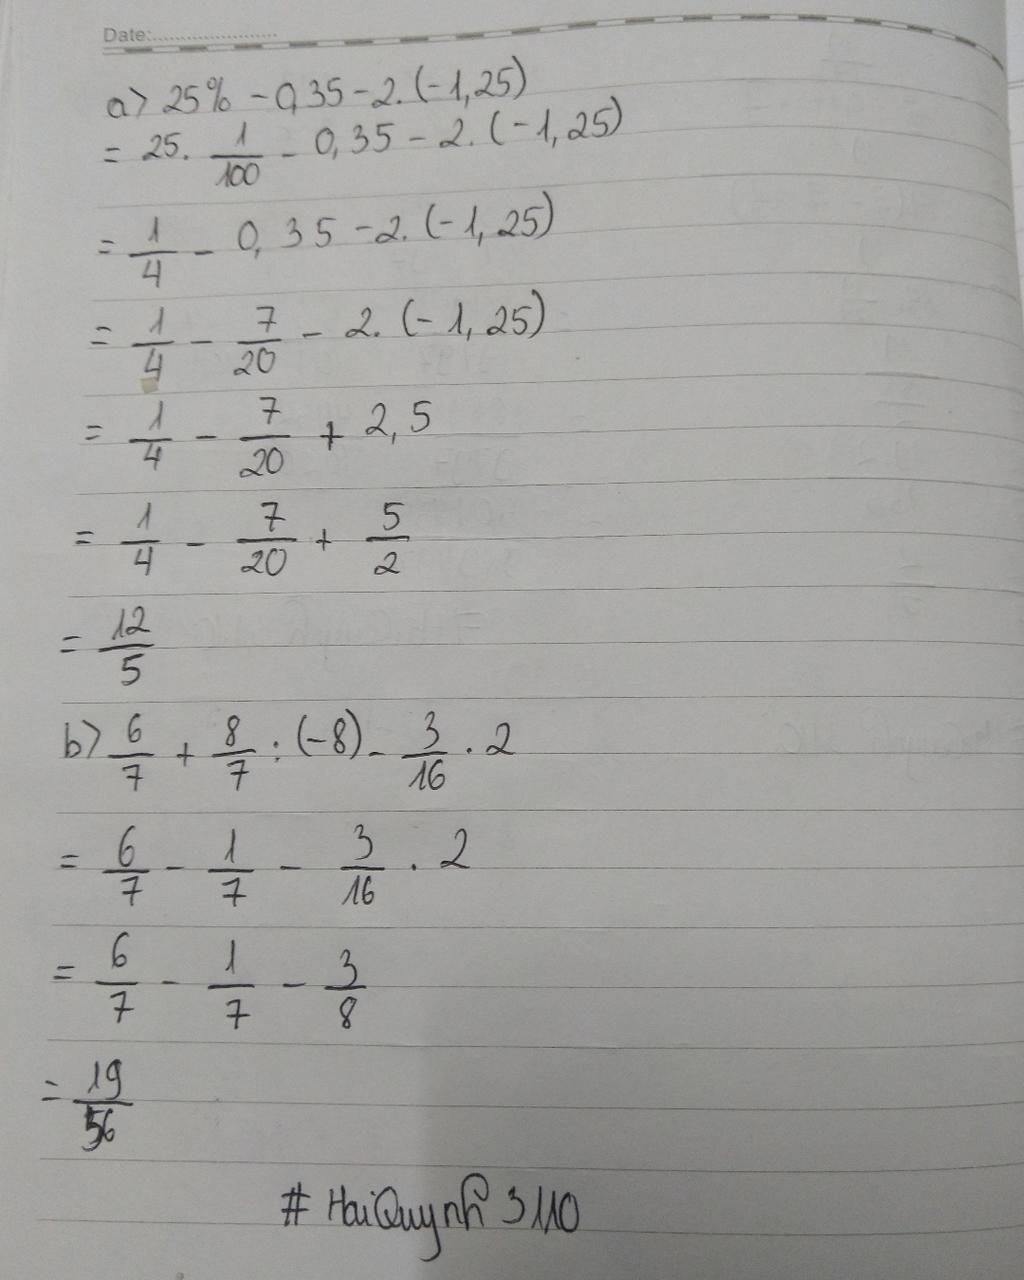 Date:......................
a> 25% - 0,35 - 2. (-1,25)
= 25. 1/100 - 0,35 - 2. (-1,25)
= 1/4 - 0,35 - 2. (-1,25)
= 1/4 - 7/20 - 2. (-1,25)
= 1/4 - 7/20 + 2,5
= 1/4 - 7/20 + 5/2
= 12/5
b> 6/7 + 8/7 : (-8) - 3/16 . 2
= 6/7 - 1/7 - 3/16 . 2
= 6/7 - 1/7 - 3/8
= 19/56
# HaiQuynh 3110